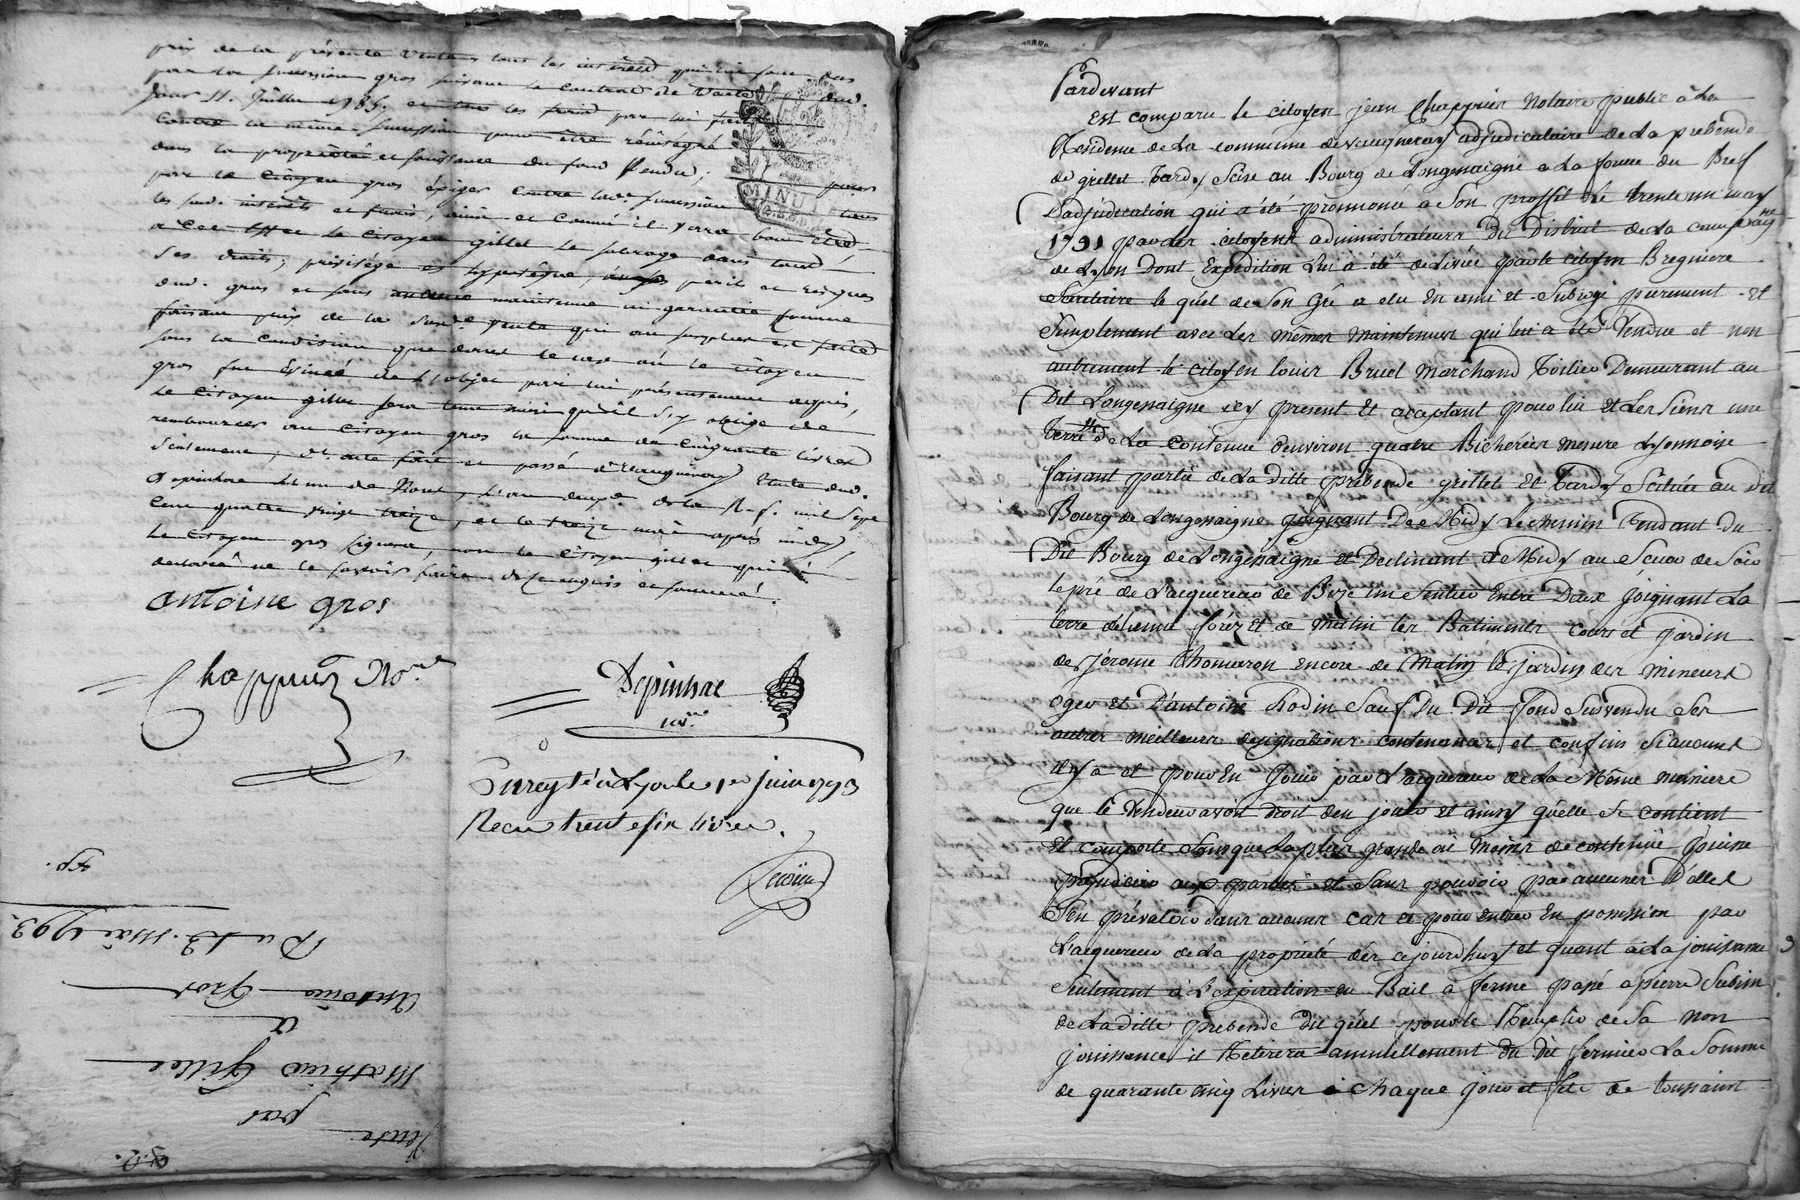 prix de la présente vente tous les intérêts qui lui sont dus
par la succession gros suivant le contrat de vente dud.
jour 11. Juillet 1785. et tous les frais par lui faits
contre la même succession pour être réintégré
dans la propriété et jouissance du fond vendu; pour
par le citoyen gros exiger contre lad. succession tous
les sud. intérêts et frais, ainsi et comme il verra bon être
a cet effet le citoyen gillet le subroge dans tous
ses droits, privilége et hypothêque, aux périls et risques
dud. gros et sans aucune maintenue ni garantie
faisant prix de la susd. vente qui au surplus est faite
sous la condition que dans le cas où le citoyen
gros fut évincé de l'objet par lui présentement acquis,
le citoyen gillet sera tenu ainsi qu'il s'y oblige de
rembourser au citoyen gros la somme de cinquante livres
seulement, dt. acte fait et passé à Vaugneray étude dud.
Depinhac l'un de Nous, l'an deux.e de la R. f. mil sept
cent quatre vingt treize, et le treize mai après midy,
le citoyen gros signera, non le citoyen gillet qui a
declaré ne le savoir faire de ce enquis et sommé.
MINUTE
antoine gros
Chappuis No.re
Depinhac
no.re
Enregistré à Lyon le 1er juin 1793
Recu trente six livres.
Vente
par
Mathieu Gillet
a
Antoine Gros
Du 13. Mai 1793.
Pardevant
Est comparu le citoyen jean Chappuis Notaire public à la
Residence de La commune de vaugneray adjudicataire de La prebende
de grillet Tardy Scise au Bourg de Longessaigne a La forme du Bref
D'adjudication qui a été prononcé a Son proffit Le trente un may
1791 par les citoyens administrateurs Du District de La campagne
de Lyon Dont Expedition Lui a été delivrée par le citoyen Bregniere
Secretaire le quel de Son Gré a elu En ami et Subrogé purement et
Simplement avec Les mêmes maintenues qui lui a été Vendue et non
autrement le citoyen louis Bruel Marchand Toilier Demeurant au
Dit Longessaigne icy present Et acceptant pour lui et Les Siens une
terre de La contenue d'environ quatre Bicherées mesure Lyonnoise
faisant partie de La ditte prebende grillet Et Tardy Scituée au dit
Bourg de Longessaigne joignant De Midy Le chemin Tendant Du
Dit Bourg de Longessaigne et Declinant de Midy au Sceur de Soir
le pré de l'acquereur de Bize un Sentier Entre Deux joignant La
terre d'etienne forez et de Matin les Batiments cours et jardin
de jérome Thomeron encore de Matin le jardin des mineurs
oger et D'antoine Rodin Sauf Du Dit fond Susvendu Ses
autres meilleures designations contenances et confins Si aucunes
il y a et pour En Jouir par L'acquereur de La Même maniere
que le Vendeur avoit droit d'en jouir et ainsy qu'elle Se contient
et comporte Sans que La plus grande ou Moins de contenue puisse
préjudicier aux parties et Sans pouvoir par aucunes D'elles
S'en prévaloir dans aucuns cas et pour entrer En possession par
L'acquereur de La propriété dès cejourdhuy et quant à La jouissance
Seulement a L'expiration du Bail a ferme passé a pierre Subrin
de La ditte prebende du quel pour le Remplir de Sa non
jouissance il Retirera annuellement du dit fermier La Somme
de quarante cinq Livres à chaque jour et fete de toussaint